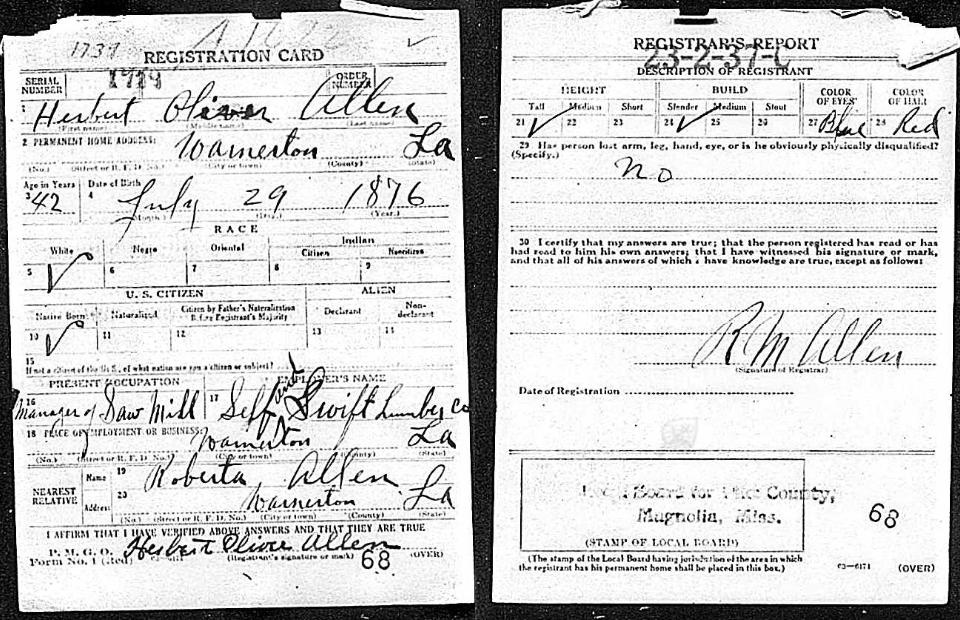 1737
REGISTRATION CARD
SERIAL NUMBER 1719 ORDER NUMBER
1 Herbert Oliver Allen
(First name) (Middle name) (Last name)
2 PERMANENT HOME ADDRESS:
Warnerton La
(No.) (Street or R. F. D. No.) (City or town) (County) (State)
Age in Years Date of Birth
3 42 4 July 29 1876
(Month.) (Day.) (Year.)
RACE
White Negro Oriental Indian
Citizen Noncitizen
5 6 7 8 9
U. S. CITIZEN ALIEN
Native Born Naturalized Citizen by Father's Naturalization Before Registrant's Majority Declarant Non-declarant
10 11 12 13 14
15
If not a citizen of the U. S., of what nation are you a citizen or subject?
PRESENT OCCUPATION EMPLOYER'S NAME
16 Manager of Saw Mill 17 Self and Swift Lumber Co
18 PLACE OF EMPLOYMENT OR BUSINESS:
Warnerton La
(No.) (Street or R. F. D. No.) (City or town) (County) (State)
NEAREST RELATIVE
Name 19 Roberta Allen
Address 20 Warnerton La
(No.) (Street or R. F. D. No.) (City or town) (County) (State)
I AFFIRM THAT I HAVE VERIFIED ABOVE ANSWERS AND THAT THEY ARE TRUE
P. M. G. O.
Form No. 1 (Red) Herbert Oliver Allen
(Registrant's signature or mark) (OVER)
68
REGISTRAR'S REPORT
23-2-37-C
DESCRIPTION OF REGISTRANT
HEIGHT BUILD COLOR OF EYES COLOR OF HAIR
Tall Medium Short Slender Medium Stout
21 22 23 24 25 26 27 Blue 28 Red
29 Has person lost arm, leg, hand, eye, or is he obviously physically disqualified?
(Specify.)
No
30 I certify that my answers are true; that the person registered has read or has
had read to him his own answers; that I have witnessed his signature or mark,
and that all of his answers of which I have knowledge are true, except as follows:
R M Allen
(Signature of Registrar)
Date of Registration
Local Board for Pike County,
Magnolia, Miss.
68
(STAMP OF LOCAL BOARD)
(The stamp of the Local Board having jurisdiction of the area in which
the registrant has his permanent home shall be placed in this box.)
03-6171 (OVER)